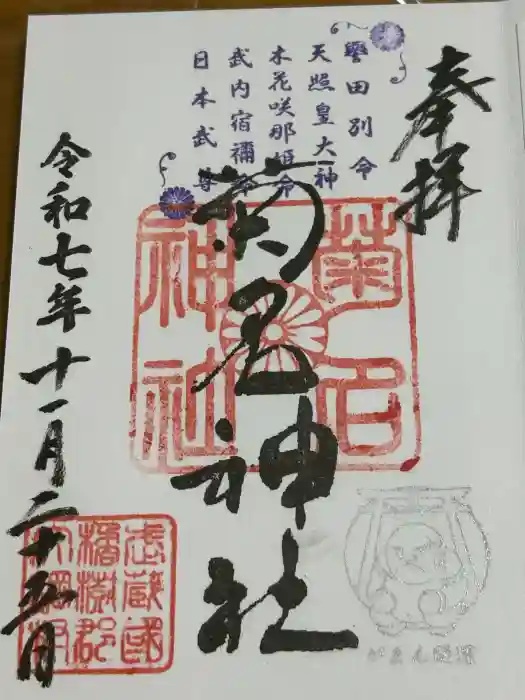 奉拝
誉田別命
天照皇大神
木花咲那姫命
武内宿禰命
日本武尊
菊名神社
菊名
神社
令和七年十一月二十五日
武蔵國
橘樹郡
がまん様